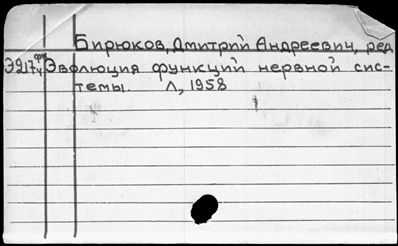 Бирюков, Дмитрий Андреевич, ред
Э917ч Эволюция функций нервной сис-
темы. Л, 1958